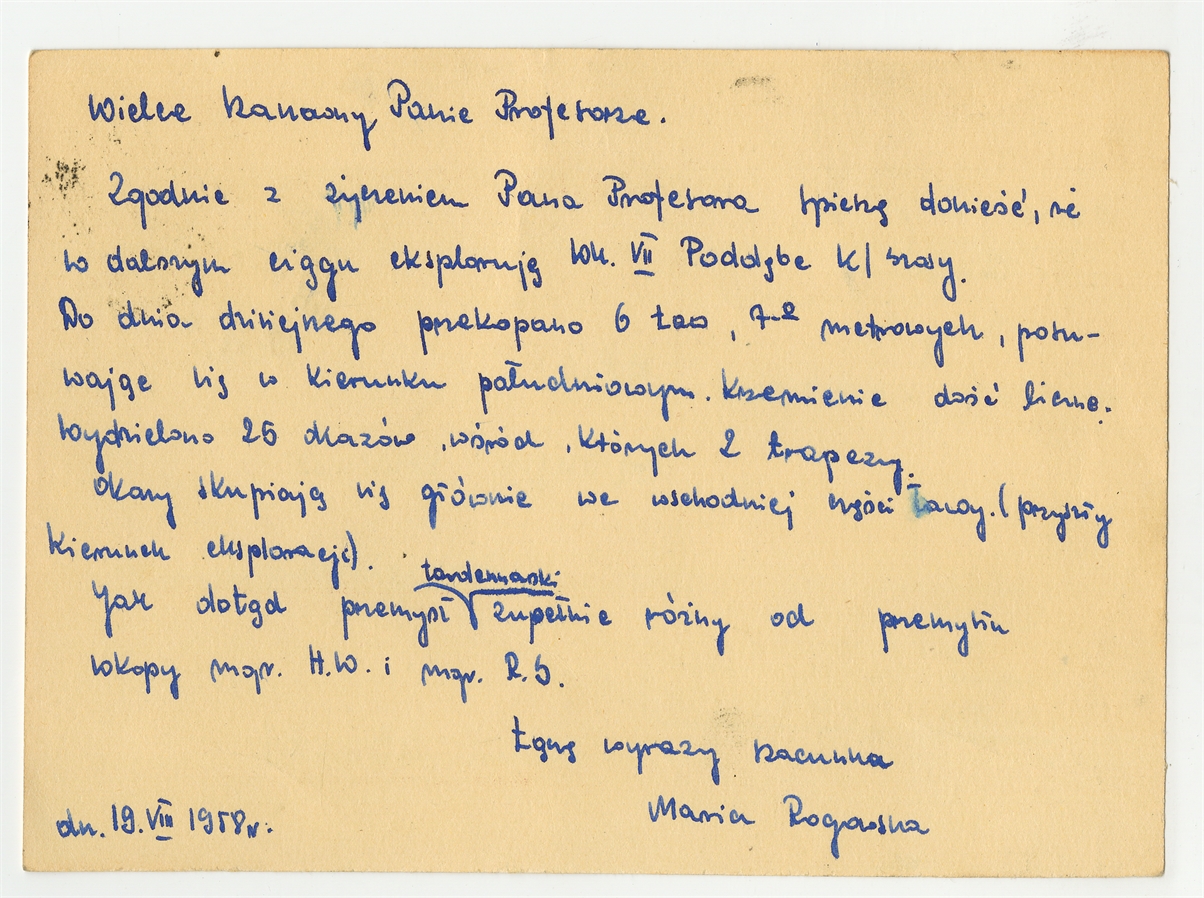 Wielce Szanowny Panie Profesorze.
Zgodnie z życzeniem Pana Profesora spieszę donieść, że
w dalszym ciągu eksploruję wk. VII Poddębe k/
Do dnia dzisiejszego przekopano 6 ław, metrowych, posu-
wając się w kierunku południowym. Krzemienie dość liczne.
Wydzielono 25 okazów, wśród, których 2 trapezy.
Okazy skupiają się głównie we wschodniej części ławy. (przyszły
kierunek eksploracji).
tardenuaski
Jak dotąd przemysł zupełnie różny od przemysłu
wkopy mgr. H.W. i mgr. R.S.
Łączę wyrazy szacunku
Maria Rogawska
dn. 19. VIII 1958 r.